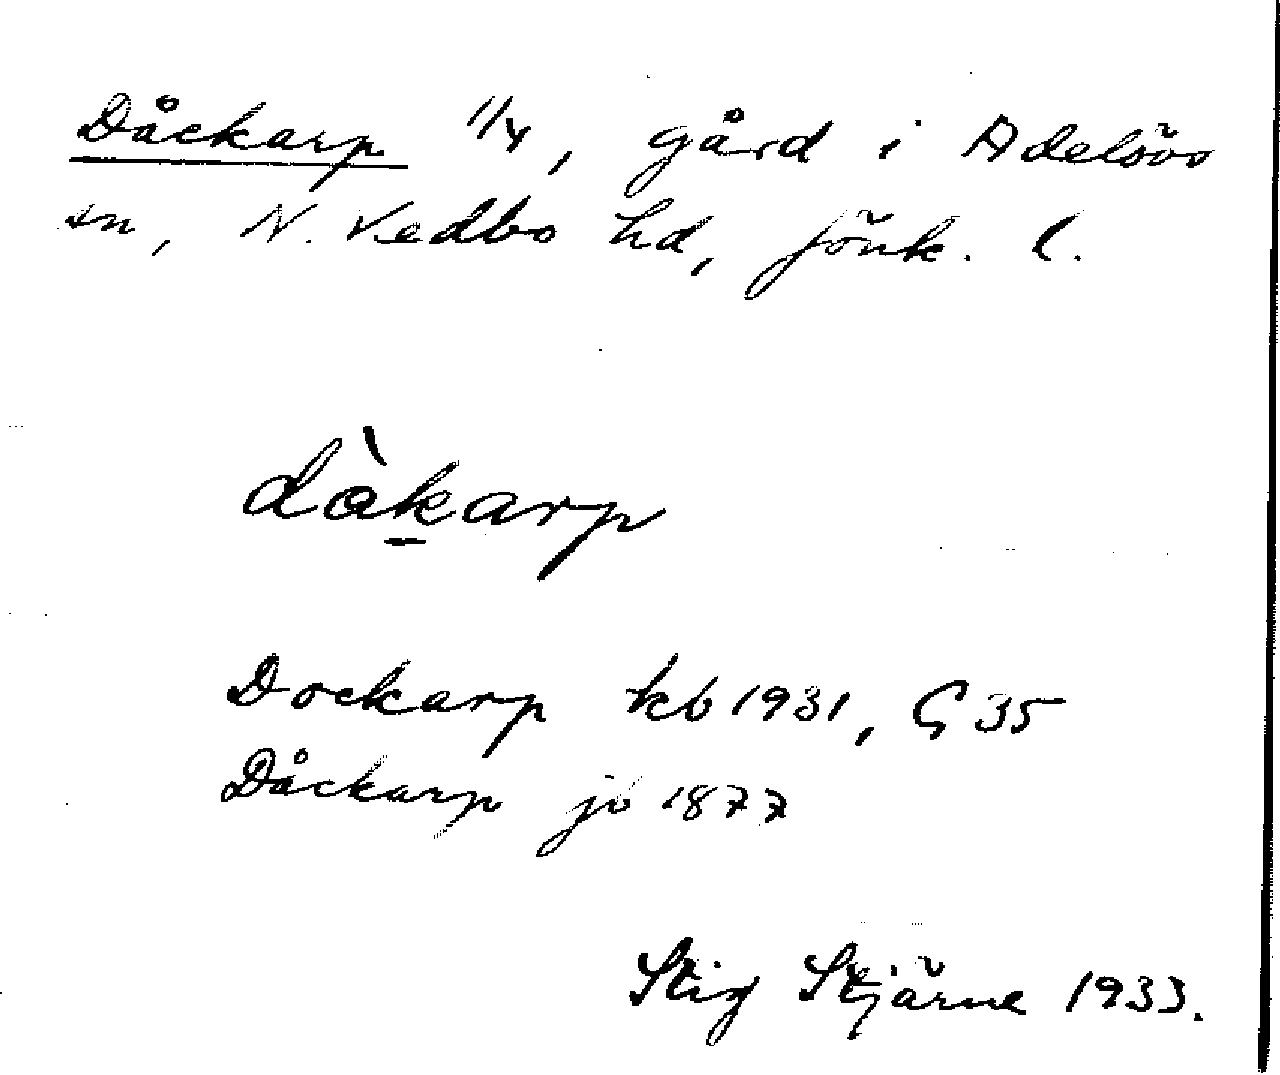 Dåckarp 1/4, gård i Adelövs
sn, N. Vedbo hd, Jönk. l.
dàkarp
Dockarp kb 1931, G 35
Dåckarp jb 1877
Stig Stjärne 1933.